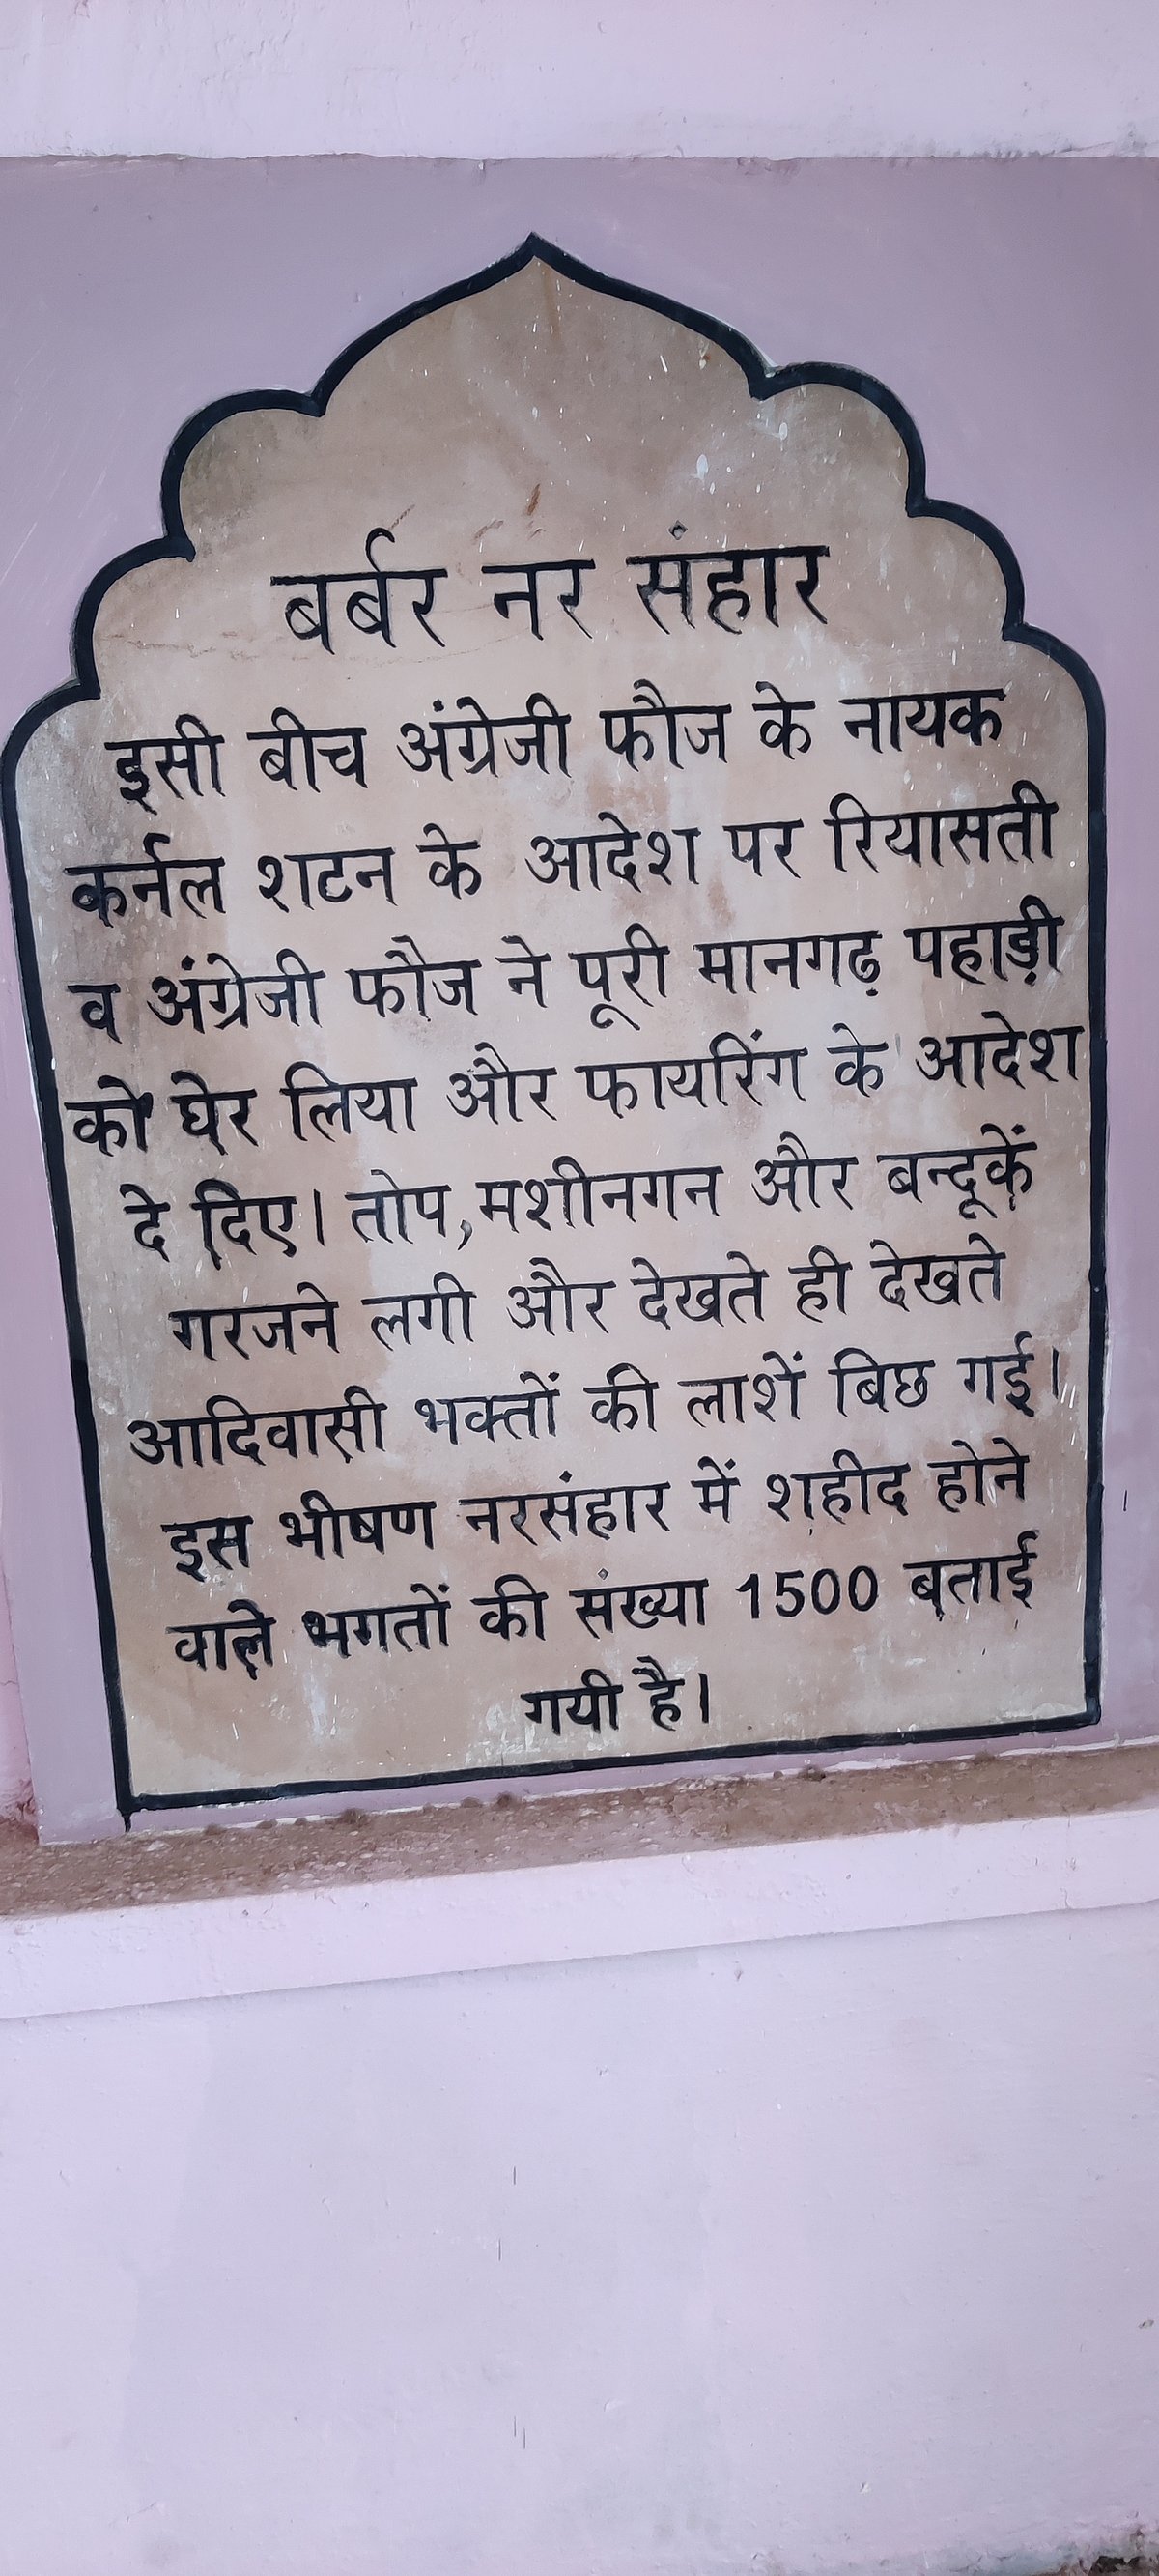 बर्बर नर संहार
इसी बीच अंग्रेजी फौज के नायक
कर्नल शटन के आदेश पर रियासती
व अंग्रेजी फौज ने पूरी मानगढ़ पहाड़ी
को घेर लिया और फायरिंग के आदेश
दे दिए। तोप,मशीनगन और बन्दूकें
गरजने लगी और देखते ही देखते
आदिवासी भक्तों की लाशें बिछ गई।
इस भीषण नरसंहार में शहीद होने
वाले भगतों की संख्या 1500 बताई
गयी है।